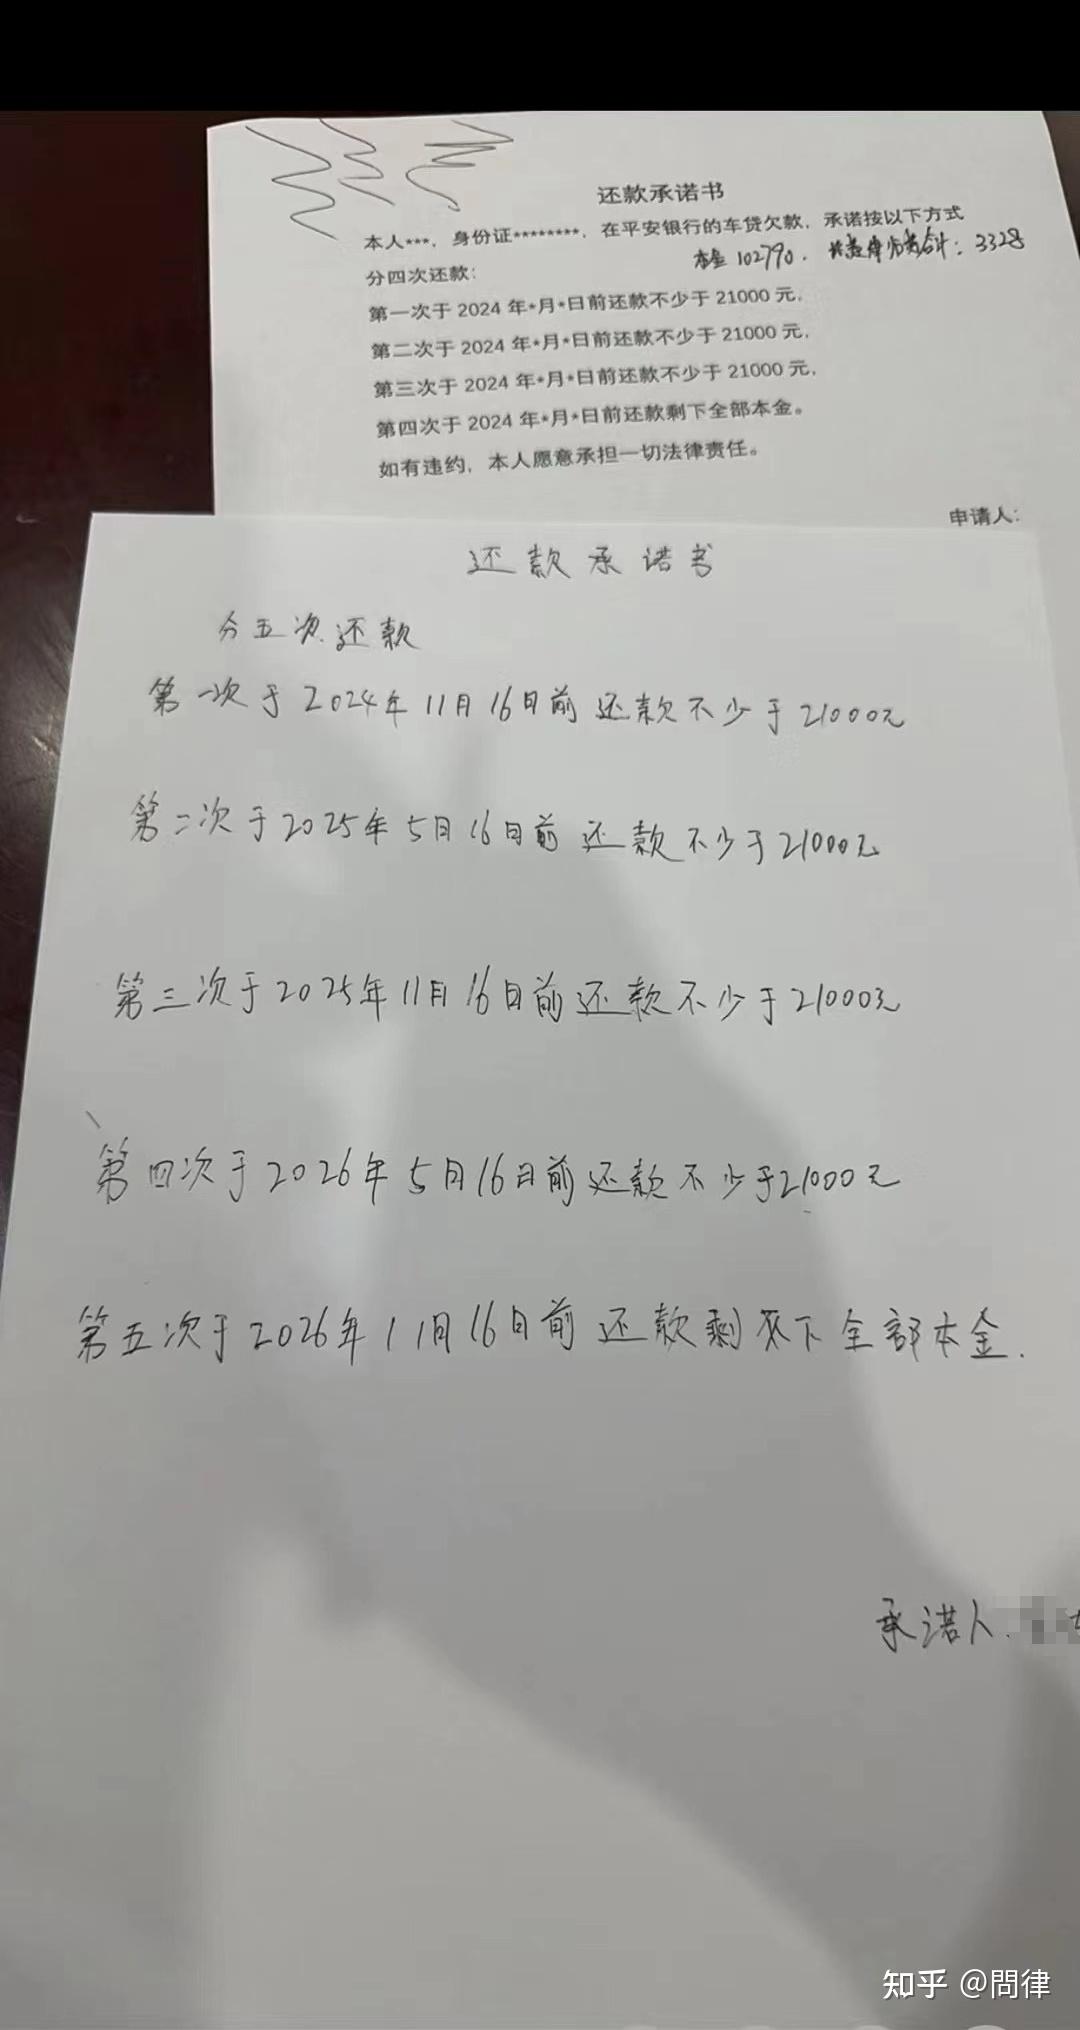 还款承诺书
本人***，身份证********，在平安银行的车贷欠款，承诺按以下方式
分四次还款：
本金 102790. 律师费合计：3328
第一次于 2024 年*月*日前还款不少于 21000 元，
第二次于 2024 年*月*日前还款不少于 21000 元，
第三次于 2024 年*月*日前还款不少于 21000 元，
第四次于 2024 年*月*日前还款剩下全部本金。
如有违约，本人愿意承担一切法律责任。
申请人：
还款承诺书
分五次还款
第一次于2024年11月16日前还款不少于21000元
第二次于2025年5月16日前还款不少于21000元
第三次于2025年11月16日前还款不少于21000元
第四次于2026年5月16日前还款不少于21000元
第五次于2026年11月16日前还款剩下全部本金.
承诺人.
知乎 @問律